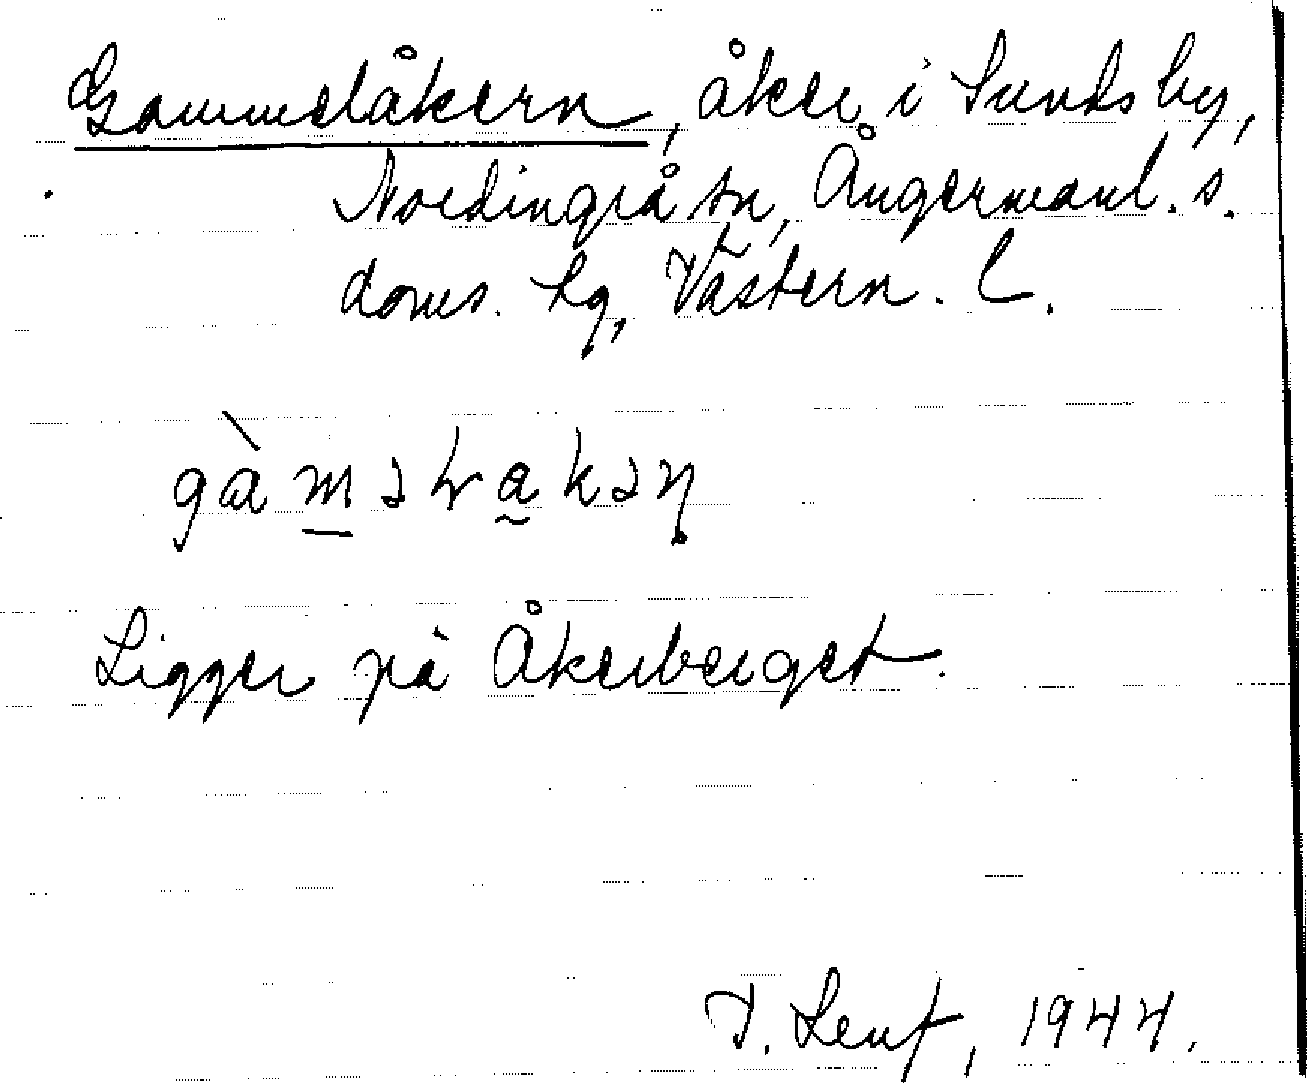 Gammelåkern, åker i Sunds by,
Nordingrå sn, Ångermanl. s.
doms. hg, Västern. l.
gàmaɬa̰kəṇ
Ligger på Åkerberget.
T. Lenf, 1944.